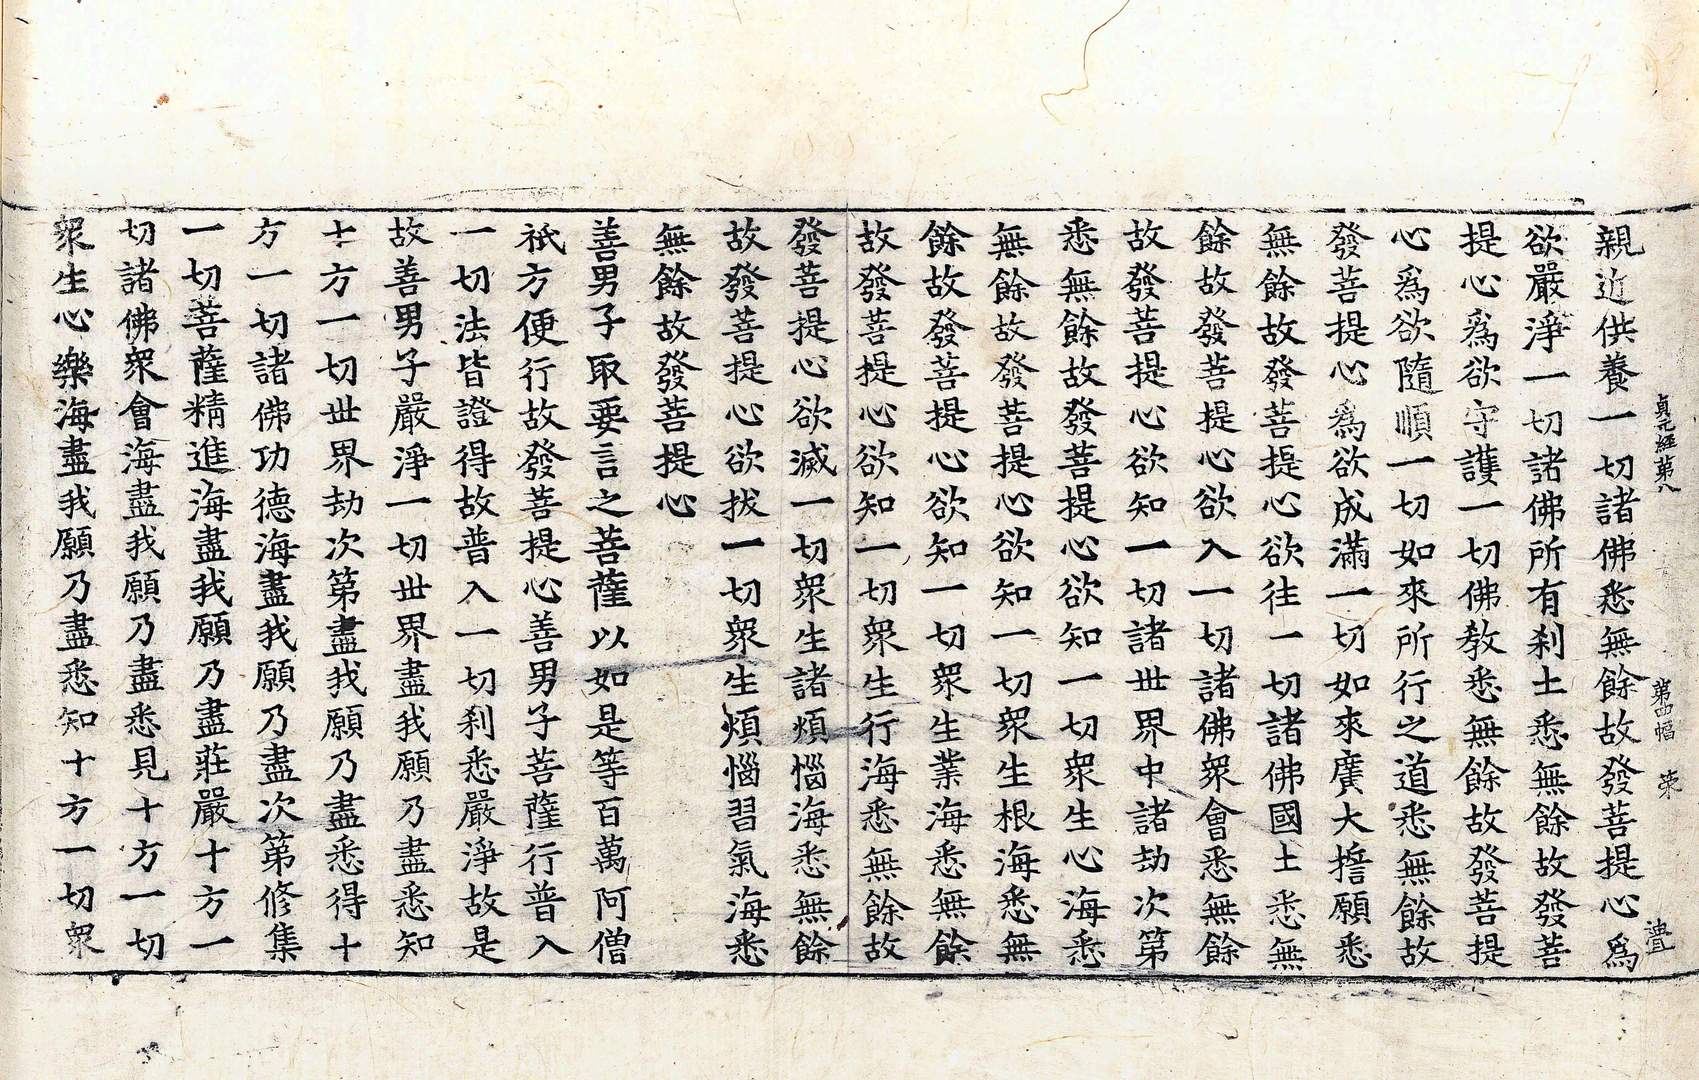 貞元經第八 第四幅 荣
親近供養一切諸佛悉無餘故發菩提心爲
欲嚴淨一切諸佛所有刹土悉無餘故發菩
提心爲欲守護一切佛教悉無餘故發菩提
心爲欲隨順一切如來所行之道悉無餘故
發菩提心爲欲成滿一切如來廣大誓願悉
無餘故發菩提心欲往一切諸佛國土悉無
餘故發菩提心欲入一切諸佛衆會悉無餘
故發菩提心欲知一切諸世界中諸劫次第
悉無餘故發菩提心欲知一切衆生心海悉
無餘故發菩提心欲知一切衆生根海悉無
餘故發菩提心欲知一切衆生業海悉無餘
故發菩提心欲知一切衆生行海悉無餘故
發菩提心欲滅一切衆生諸煩惱海悉無餘
故發菩提心欲拔一切衆生煩惱習氣海悉
無餘故發菩提心
善男子取要言之菩薩以如是等百萬阿僧
祇方便行故發菩提心善男子菩薩行普入
一切法皆證得故普入一切刹悉嚴淨故是
故善男子嚴淨一切世界盡我願乃盡悉知
十方一切世界劫次第盡我願乃盡悉得十
方一切諸佛功德海盡我願乃盡次第修集
一切菩薩精進海盡我願乃盡莊嚴十方一
切諸佛衆會海盡我願乃盡悉見十方一切
衆生心樂海盡我願乃盡悉知十方一切衆